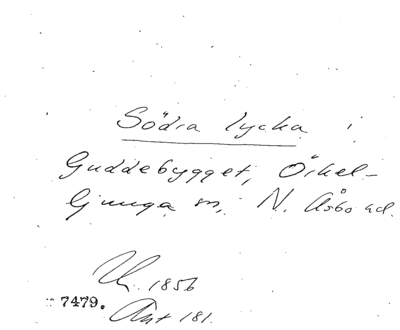 Södra lycka i
Guddebygget, Örkel-
ljunga sn, N. Åsbo hd.
Lh. 1856
7479.
Ant 181.